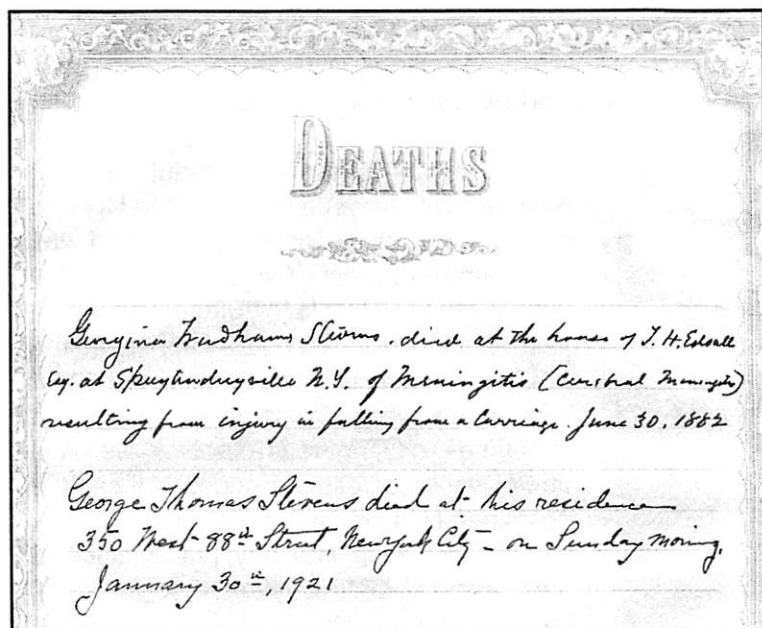 DEATHS
Georgina Wadhams Stevens. died at the house of T. H. Edsall
Esq. at Spuytenduyville N.Y. of Meningitis (Cerebral Meningitis)
resulting from injury in falling from a Carriage. June 30, 1882
George Thomas Stevens died at his residence
350 West 88th Street, New York City – on Sunday morning,
January 30th, 1921